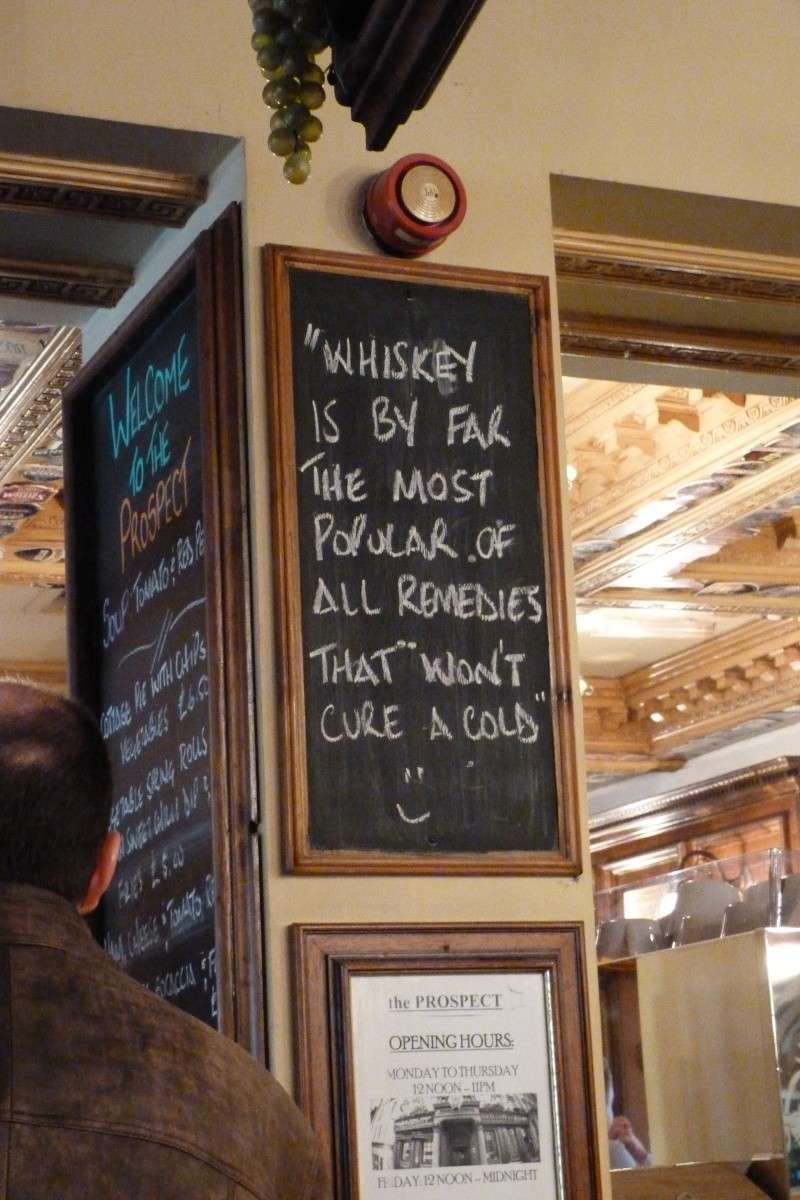 WELCOME
TO THE
PROSPECT
SOUP TOMATO & RED
COTTAGE PIE WITH CHIPS
VEGETABLES £6.50
SPRING ROLLS
SWEET CHILLI DIP &
FRIES £5.00
CHEESE & TOMATO
"WHISKEY
IS BY FAR
THE MOST
POPULAR OF
ALL REMEDIES
THAT WON'T
CURE A COLD"
the PROSPECT
OPENING HOURS:
MONDAY TO THURSDAY
12 NOON – 11PM
FRIDAY: 12 NOON – MIDNIGHT